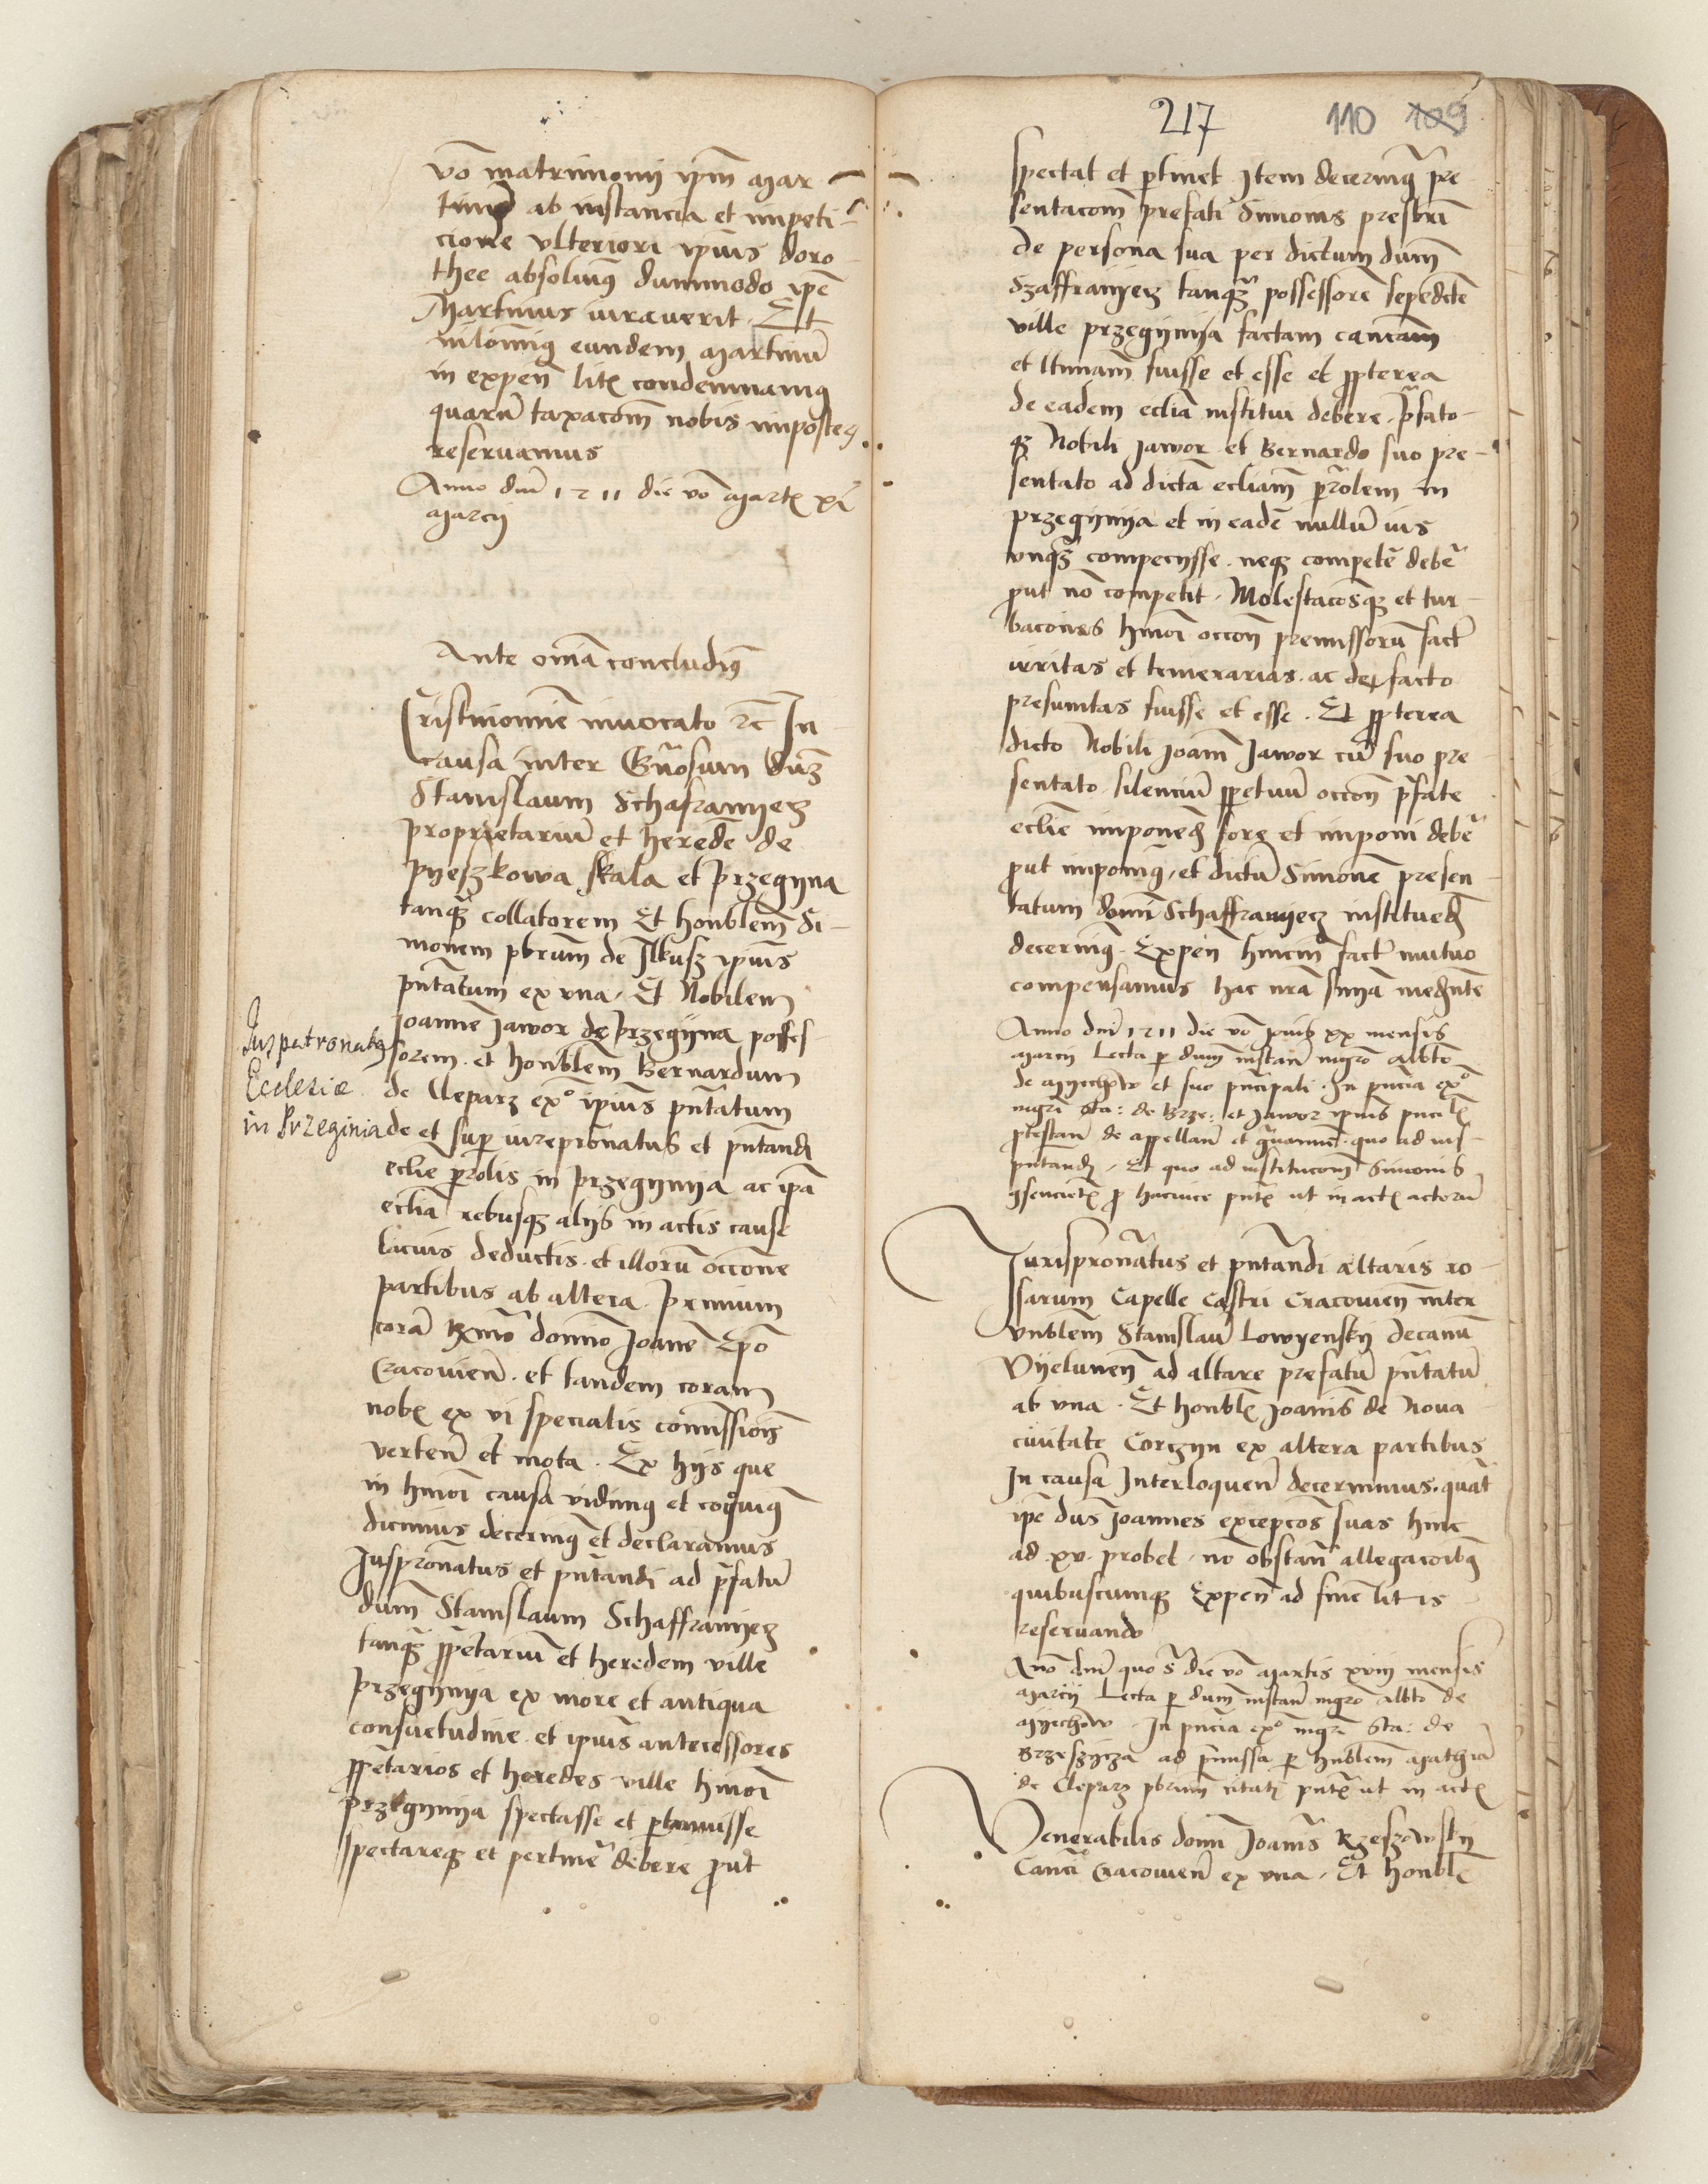 vō matrimonij ipm̄ Mar
tinū ab instancia et impeti-
cione vlteriori ipius doro
thee absoluimꝰ dummodo ipē
Martinus iurauerit. Et
nilominꝰ eundem Martinū
in expen̄ litꝭ condemnamꝰ
quarū taxacōm nobis imposteꝝ
reseruamus
Anno dnī 1511 die vō Martꝭ xi
Marcij
Ante om̄ia concludimꝰ
Cristi nomine inuocato ꝛc̄ In
causa inter Gn̄osum dūm
Stanislaum Schafranyecz
proprietariū et heredē de
pyeszkowa skala et przegyna
tanqꝫ collatorem Et honblem̄ Si-
monem pbrum̄ de Ilkusz ipius
pn̄tatum ex vna. Et Nobilem
Joannē Jawor de przegyna posses
sorem. et honblem̄ Bernardum
Jus patronatꝰ
Ecclesiæ
in Przeginia
de Cleparz exº ipius pn̄tatum
de et sup̄ iurepr̄onatus et pn̄tandi
eclie pr̄olis in przegynya ac ipā
ecliā rebusqꝫ alijs in actis cause
lacius deductis. et illorū occōne
partibus ab altera. Primum
corā Rmō domīo Joanē Epō
Cracouien̄. et tandem coram
nobꝭ ex vi specialis com̄issionis
verten̄ et mota. Ex hijs que
in hmōi causa vidimꝰ et cogͦuimꝰ
dicimus decernimꝰ et declaramus
Juspr̄onatus et pn̄tandi ad pr̄fatū
dūm Stanislaum Schaffranyecz
tanqꝫ ꝓprietariū et heredem ville
przegynya ex more et antiqua
consuetudine. et ipius antecessores
ꝓprietarios et heredes ville hmōi
przegynya spectasse et ꝑtinuisse
spectareqꝫ et pertinē debere ꝓut
217 110 109
spectat et ꝑtinet Item decernimꝰ pre
sentacōm prefati Simonis presbrī
de persona sua per dictum dūm
Szaffranyecz tanqꝫ possessorē sepedcte
ville przegynya factam canicam̄
et ltimam̄ fuisse et esse et ꝓpterea
de eadem ecliā institui debere. pr̄fato-
qꝫ Nobili Jawor et Bernardo suo pre-
sentato ad dictā ecliam̄ pr̄olem in
przegynya et in eadē nullū ius
vnqꝫ competijsse. neqꝫ competē debē
ꝓut nō competit. Molestacōsqꝫ et tur-
bacōnes hmōi occōn̄ premissorū fact̄
irritas et temerarias. ac de facto
presumtas fuisse et esse. Et ꝓpterea
dicto Nobili Joanī Jawor cū suo pre-
sentato silenciū ꝑpetuū occōn̄ pr̄fate
eclie imponend̄ fore et imponi debē
ꝓut imponimꝰ, et dictū Simonē presen-
tatum domī Schaffranyecz instituend̄
decernimꝰ. Expen̄ hincin̄ fact̄ mutuo
compensamus hac nr̄a sn̄ia mediante
Anno dnī 1511 die vō Jouis xx mensis
Marcij Lecta ꝑ dūm instan̄ mgrō Albtō
de Myechow et suo principali. In pn̄cia exº
mgrī Sta: de Brze: et Jawor ipius prīnclꝭ
ꝓtestan̄ de appellan̄ et grauamīe. quo ad ius
pn̄tandi. Et quo ad institucōm Simonis
ꝯsencietꝭ ꝓ hacuice pn̄tꝭ ut in actꝭ actorū
Jurispr̄onatus et pn̄tandi altaris ro-
sarum Capelle Castri Cracouien̄ inter
vnblem̄ Stanislaū Lowyensky decanū
Vyelunen̄ ad altare prefatū pn̄tatū
ab vna. Et honblꝭ Joanis de Noua
ciuitate Corczyn ex altera partibus
In causa Interloquen̄ decernimus. quat̄
ipē dūs Joannes excepcōs suas hinc
ad xv. probet. nō obstan̄ allegacōibꝰ
quibuscumqꝫ Expen̄ ad finē litis
reseruando
Anō dnī quo s̄ die vō Martis xviij mensis
Marcij Lecta ꝑ dūm instan̄ mgrō Albtō de
Myechow. In pn̄cia exº mgrī Sta: de
Brzeszijcza ad pr̄missa ꝑ hnblem̄ Mathiā
de Cleparz pbrum̄ citati pn̄tꝭ ut in actꝭ
Venerabilis domī Joanis Rzeszowsky
Canci Cracouien̄ ex vna. Et honblꝭ